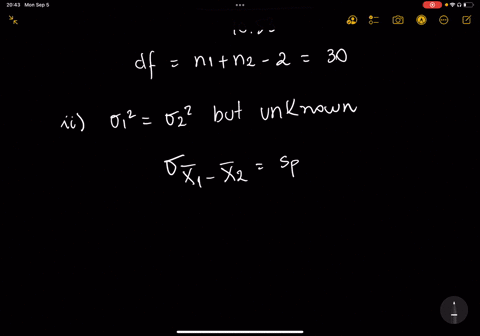 20:43 Mon Sep 5
df = n1 + n2 - 2 = 30
ii) σ1² = σ2² but unknown
σX̄1 - X̄2 = Sp